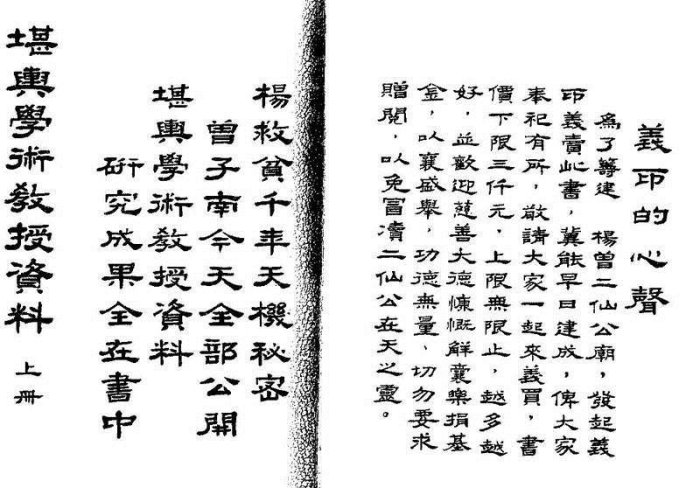 義印的心聲
為了籌建 楊曾二仙公廟，發起義
印義賣此書，冀能早日建成，俾大家
奉祀有所，敬請大家一起來義買，書
價下限三仟元，上限無限止，越多越
好，並歡迎慈善大德慷慨解囊樂捐基
金，以襄盛舉，功德無量、切勿要求
贈閱，以免冒瀆二仙公在天之靈。
楊救貧千年天機秘密
曾子南今天全部公開
堪輿學術教授資料
研究成果全在書中
堪輿學術教授資料 上冊